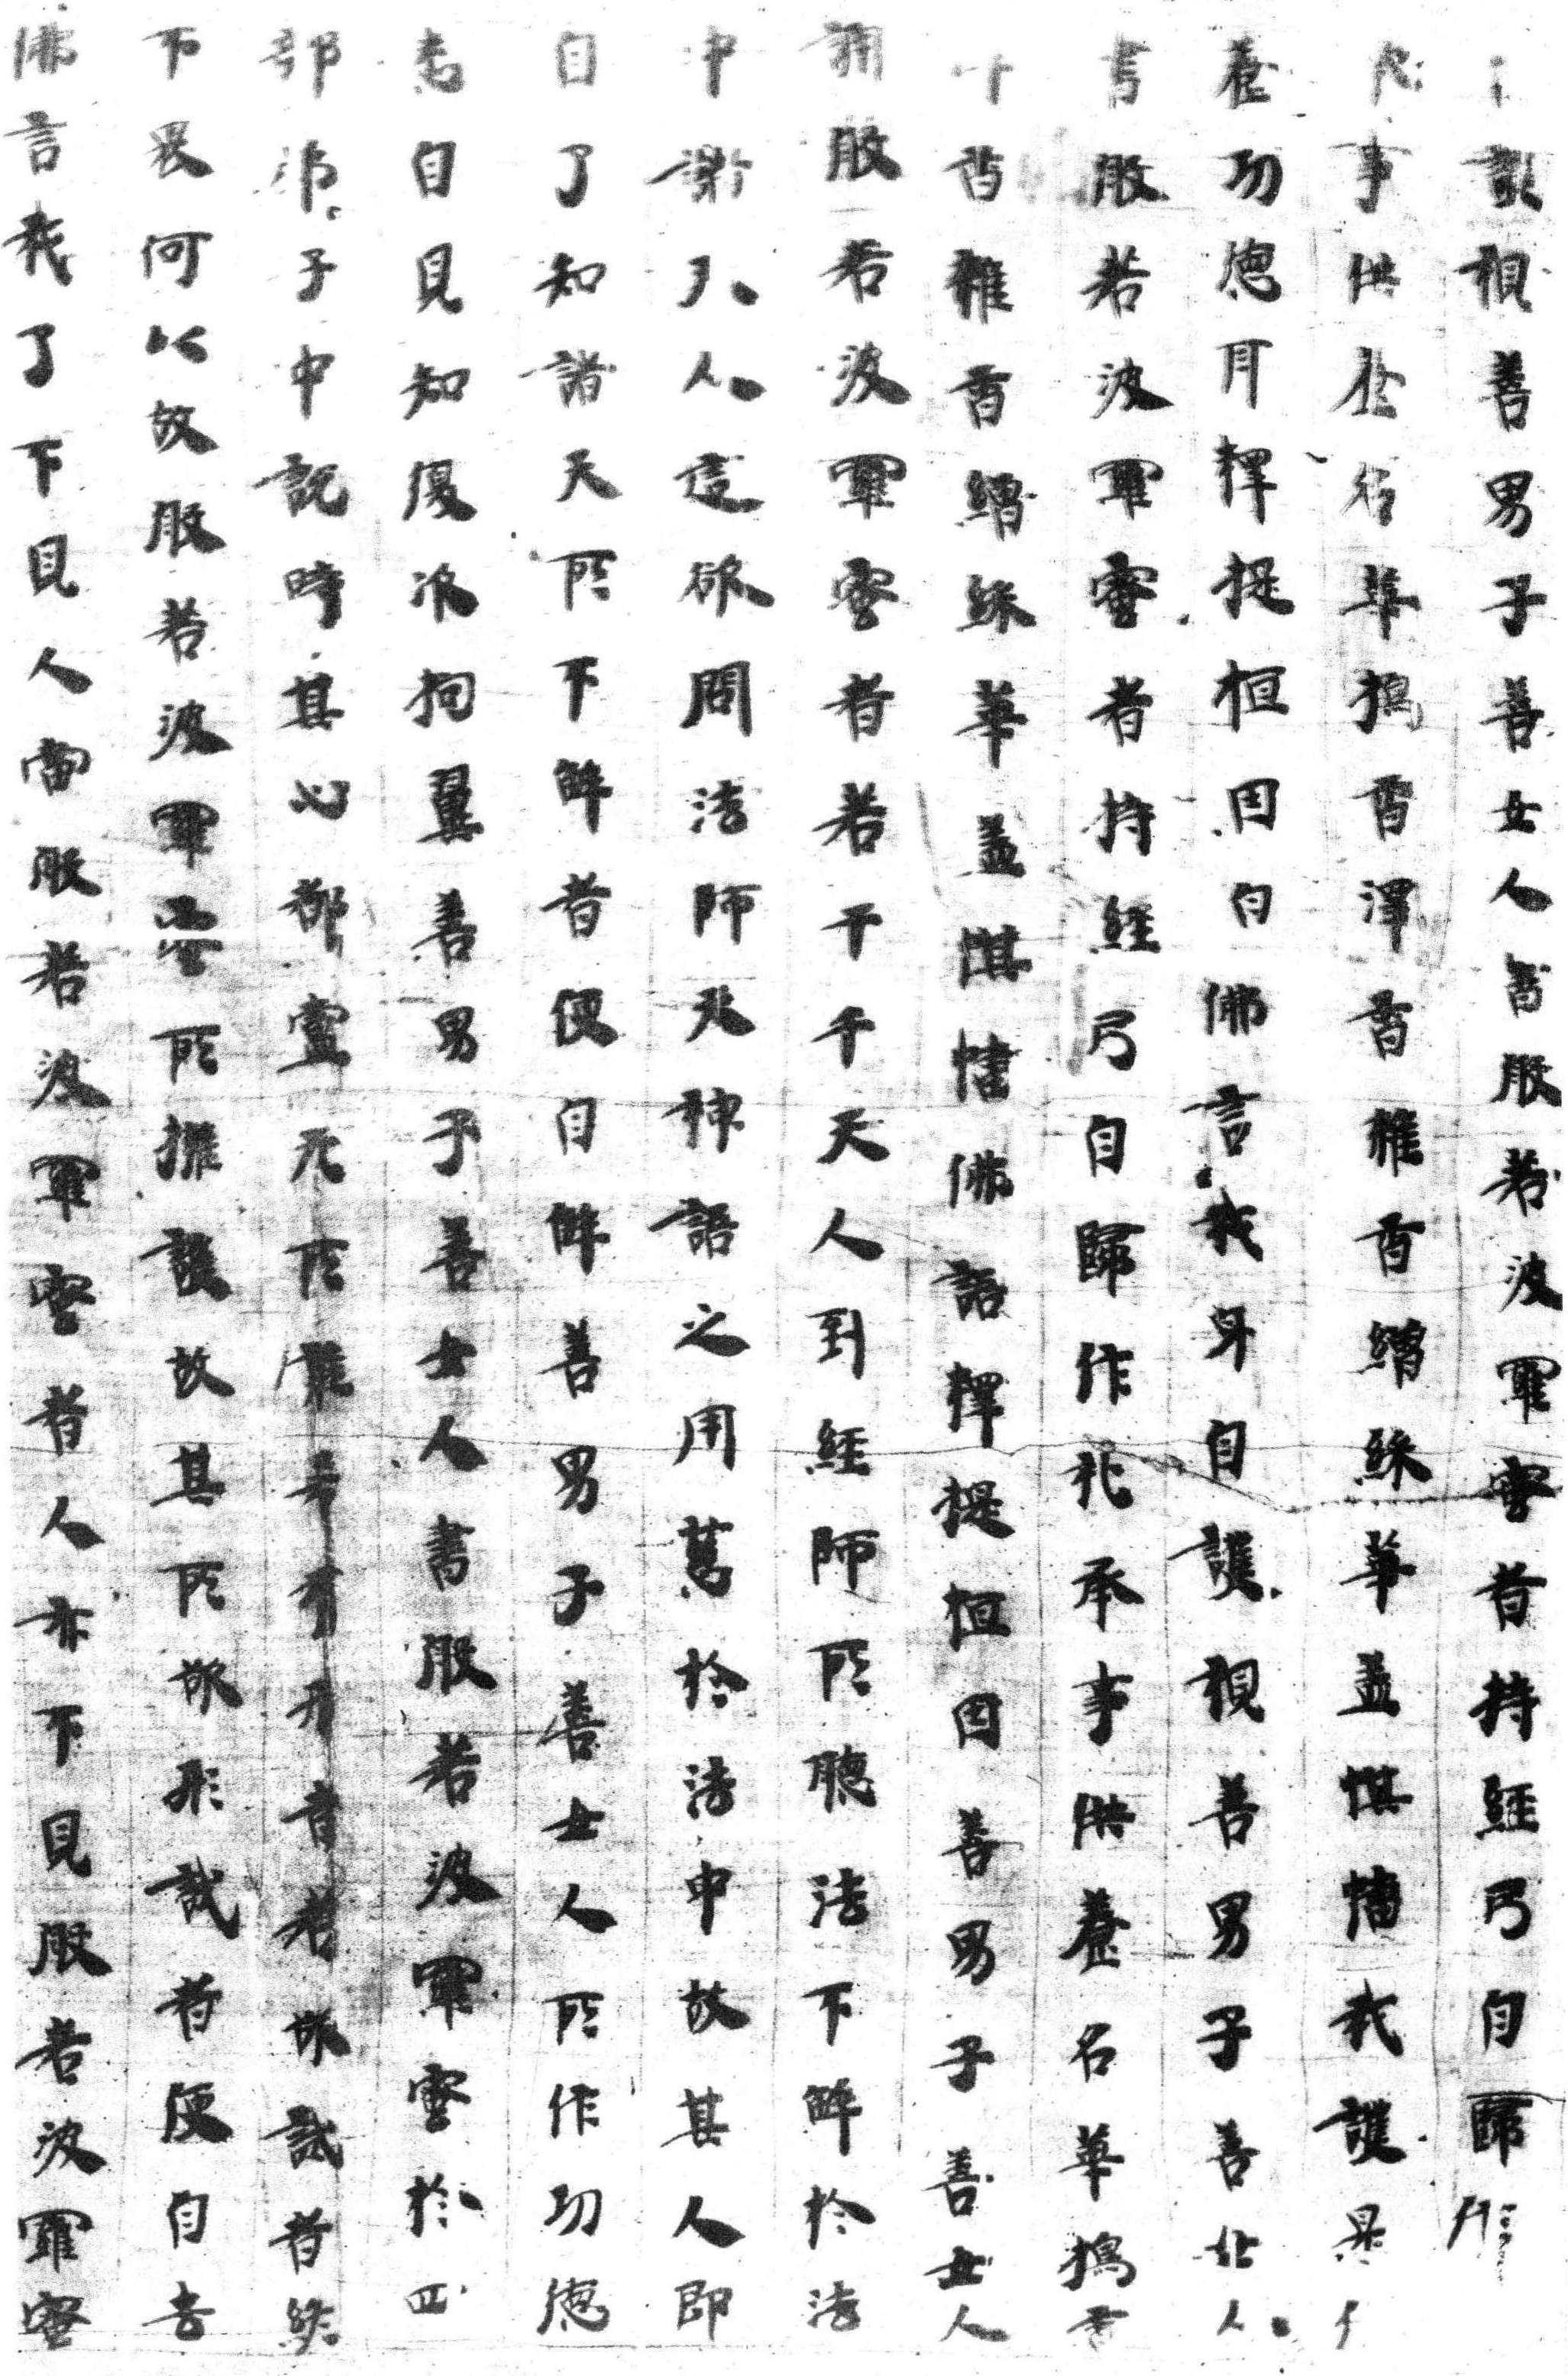 護視善男子善女人書般若波羅蜜者持經弓自歸作
事供養名華搗香澤香雜香繒綵華蓋旗幡我護是
養功德耳釋提桓因白佛言我身自護視善男子善女人
書般若波羅蜜者持經弓自歸作礼承事供養名華搗香
香雜香繒綵華蓋旗幡佛語釋提桓因善男子善女人
誦般若波羅蜜者若干千天人到經師所聽法不解於法
中諸天人適欲問法師天神語之用慈於法中故其人即
自了知諸天所不解者便自解善男子善女人所作功德
悉自見知復次拘翼善男子善女人書般若波羅蜜於四
部弟子中說時其心都盧无所難若有形者若欲試者終
不畏何以故般若波羅蜜所擁護故其所欲形試者便自去
佛言我了不見人當般若波羅蜜者人亦不見般若波羅蜜